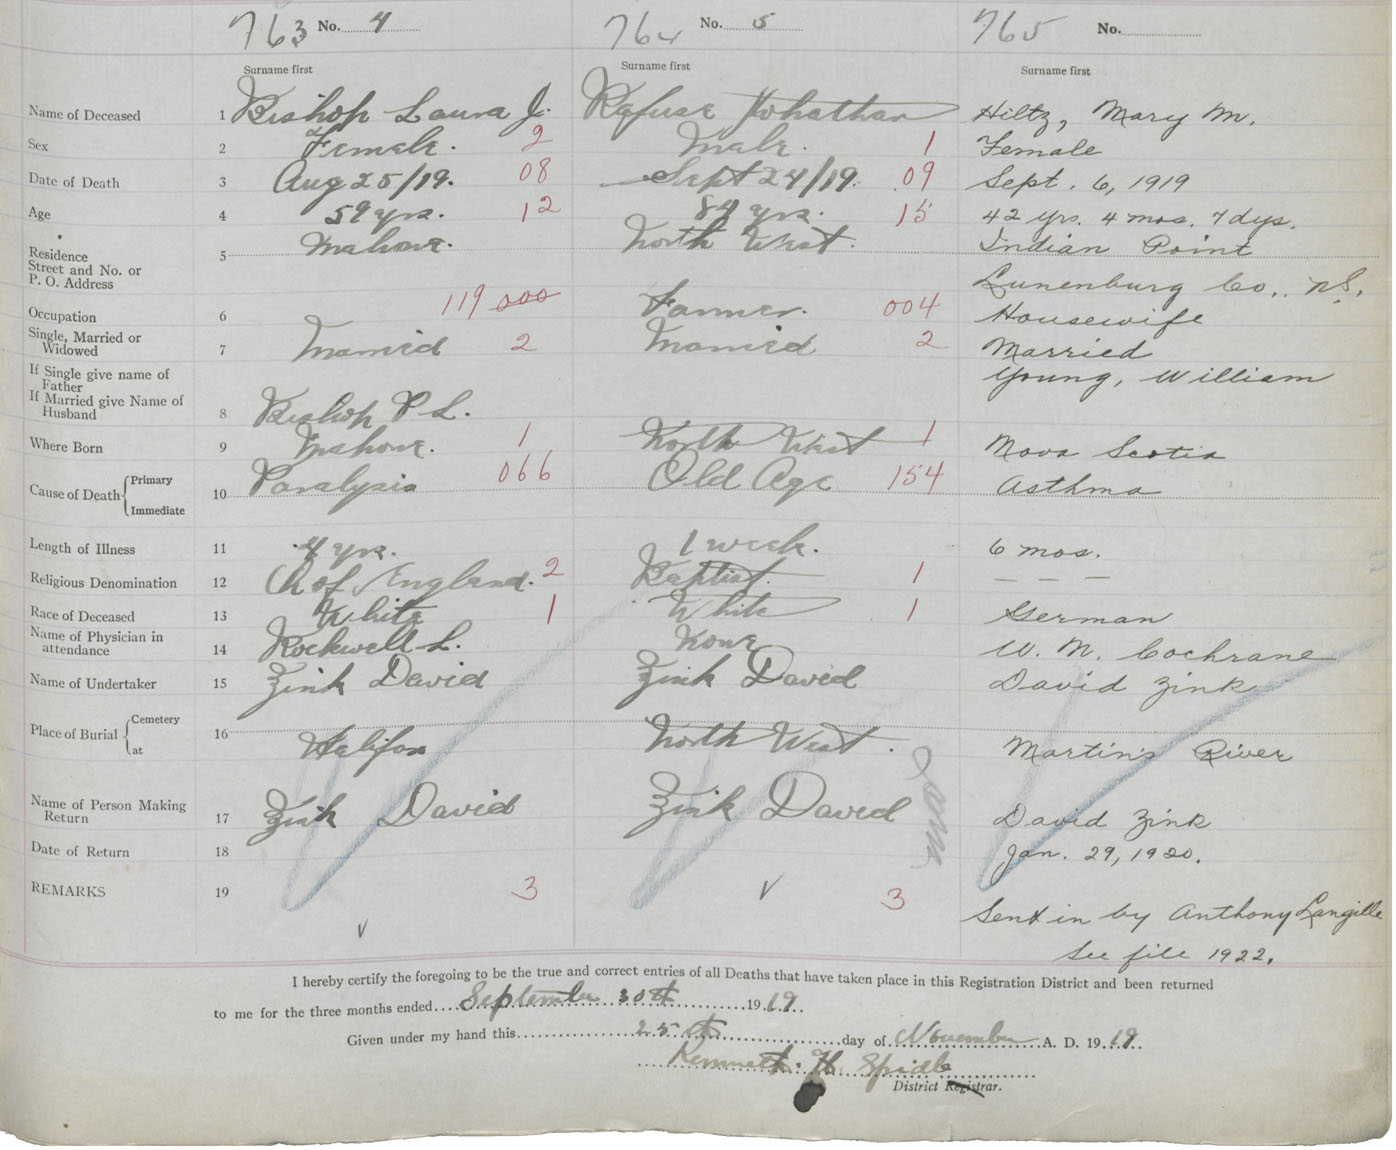 763 No. 4 764 No. 5 765 No.
Surname first Surname first Surname first
Name of Deceased 1 Bishop Laura J. Refuse Johathan Hiltz, Mary M.
Sex 2 Female. 2 Male. 1 Female
Date of Death 3 Aug 25/19. 08 Sept 24/19. 09 Sept. 6, 1919
Age 4 59 yrs. 12 84 yrs. 15 42 yrs. 4 mos. 7 dys.
Residence
Street and No. or
P. O. Address 5 Mahone. North West. Indian Point
Lunenburg Co., N.S.
Occupation 6 119 000 Farmer. 004 Housewife
Single, Married or
Widowed 7 Married 2 Married 2 Married
If Single give name of
Father
If Married give Name of
Husband 8 Bishop P L. Young, William
Where Born 9 Mahone. 1 North West 1 Nova Scotia
Cause of Death { Primary
Immediate 10 Paralysis 066 Old Age 154 Asthma
Length of Illness 11 4 yrs. 1 week. 6 mos.
Religious Denomination 12 Ch of England. 2 Baptist. 1 — — —
Race of Deceased 13 White 1 White 1 German
Name of Physician in
attendance 14 Rockwell L. None W. N. Cochrane
Name of Undertaker 15 Zink David Zink David David Zink
Place of Burial { Cemetery
at 16 Halifax North West. Martin's River
Name of Person Making
Return 17 Zink David Zink David David Zink
Date of Return 18 Jan. 29, 1920.
REMARKS 19 3 3 Sent in by Anthony Langille
See file 1922.
I hereby certify the foregoing to be the true and correct entries of all Deaths that have taken place in this Registration District and been returned
to me for the three months ended September 30th 1919.
Given under my hand this 25th day of November A. D. 1919.
Kenneth H. Spidle
District Registrar.